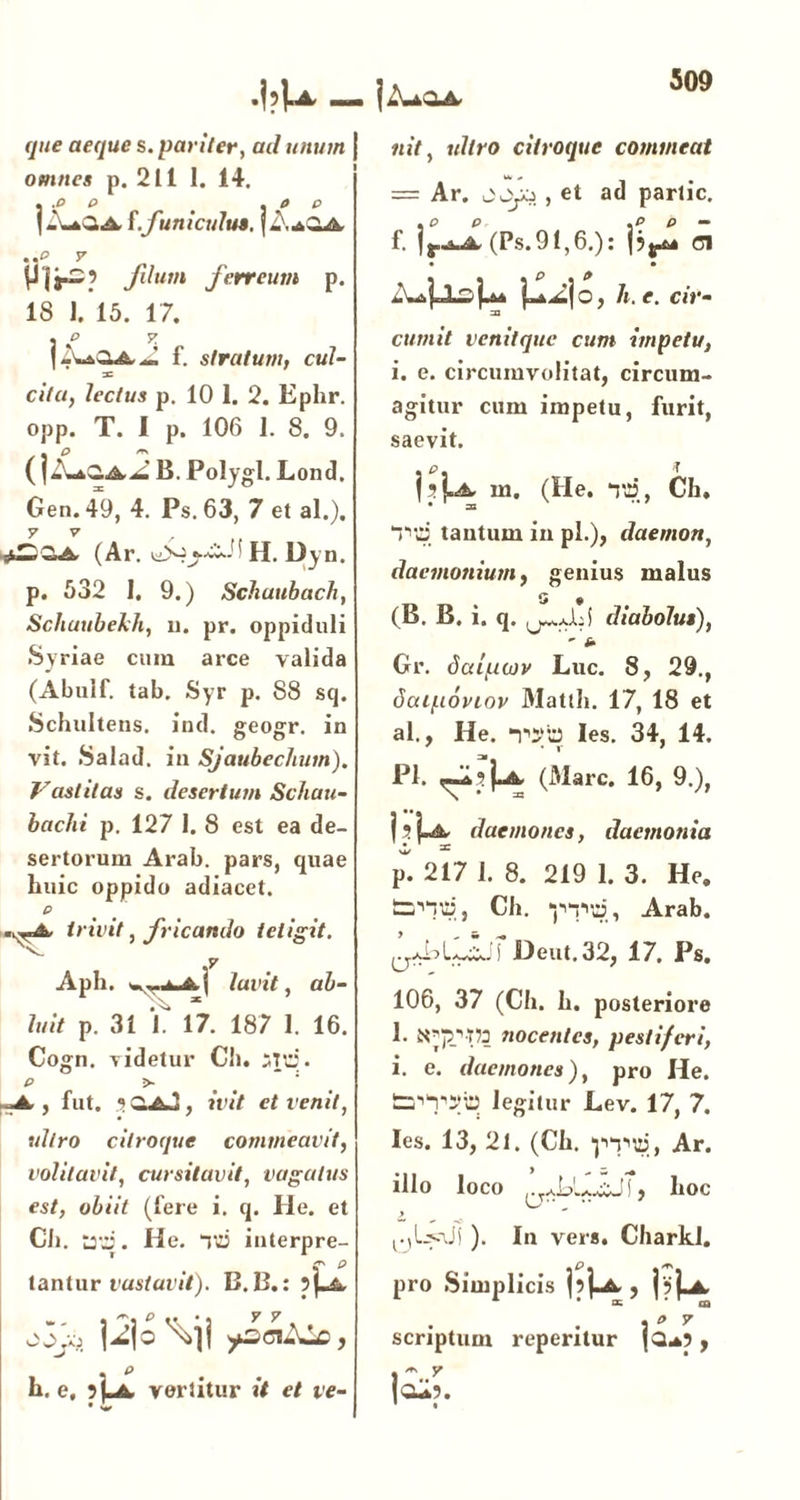 .ܫܐܕܐ — ܫܘܝܬܐ 509
que aeque s. pariter, ad unum
omnes p. 211 l. 14.
ܫܘܝܬܐ f. funiculus. ܫܘܝܬܐ
ܕܦܪܙܠܐ filum ferreum p.
18 l. 15. 17.
ܬܫܘܝܬܐ f. stratum, cul-
cita, lectus p. 10 l. 2. Ephr.
opp. T. I p. 106 l. 8. 9.
(ܬܫܘܝܬܐ B. Polygl. Lond.
Gen. 49, 4. Ps. 63, 7 et al.).
ܫܘܒܟ (Ar. الشوبك H. Dyn.
p. 532 l. 9.) Schaubach,
Schaubekh, n. pr. oppiduli
Syriae cum arce valida
(Abulf. tab. Syr p. 88 sq.
Schultens. ind. geogr. in
vit. Salad. in Sjaubechum).
Vastitas s. desertum Schau-
bachi p. 127 l. 8 est ea de-
sertorum Arab. pars, quae
huic oppido adiacet.
ܫܓ trivit, fricando tetigit.
Aph. ܐܫܝܓ lavit, ab-
luit p. 31 l. 17. 187 l. 16.
Cogn. videtur Ch. שׁזג.
fut. ܢܫܘܕ, ivit et venit,
ultro citroque commeavit,
volitavit, cursitavit, vagatus
est, obiit (fere i. q. He. et
Ch. שׁט. He. שׁד interpre-
tantur vastavit). B. B.: ܫܐܕ
ܡܬܗܦܟ ܐܙܠ ܘܐܬܐ يدور,
h. e. ܫܐܕ vertitur it et ve-
nit, ultro citroque commeat
= Ar. يدور, et ad partic.
f. ܫܝܕܐ (Ps. 91, 6.): ܗܝ ܚܕܪܐ
ܘܐܬܝܐ ܚܐܦܢܐܝܬ, h. e. cir-
cumit venitque cum impetu,
i. e. circumvolitat, circum-
agitur cum impetu, furit,
saevit.
ܫܐܕܐ m. (He. שֵׁד, Ch.
שֵׁיד tantum in pl.), daemon,
daemonium, genius malus
(B. B. i. q. إبليس diabolus),
Gr. δαίμων Luc. 8, 29.,
δαιμόνιον Matth. 17, 18 et
al., He. שָׂעִיר Ies. 34, 14.
Pl. ܫܐܕܝܢ (Marc. 16, 9.),
ܫܐܕܐ daemones, daemonia
p. 217 l. 8. 219 l. 3. He.
שֵׁדִים, Ch. שֵׁידִין, Arab.
الشياطين Deut. 32, 17. Ps.
106, 37 (Ch. h. posteriore
l. מַזִּיקַיָּא nocentes, pestiferi,
i. e. daemones), pro He.
שְׂעִירִים legitur Lev. 17, 7.
Ies. 13, 21. (Ch. שֵׁידִין, Ar.
illo loco الشياطين, hoc
الجان). In vers. Charkl.
pro Simplicis ܫܐܕܐ, ܫܐܕܐ
scriptum reperitur ܕܝܘܐ,
ܕܝܘܐ.